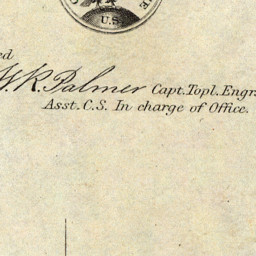 U.S.
ed
W.R. Palmer Capt. Topl. Engr.
Asst. C.S. In charge of Office.